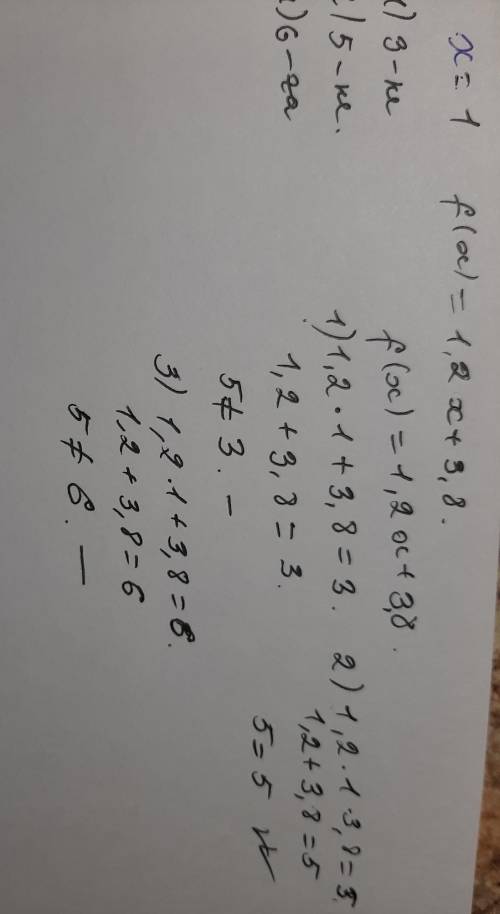 x = 1 f(x) = 1,2x + 3,8.
) 3 - не
) 5 - не.
) 6 - га
f(x) = 1,2x + 3,8.
1) 1,2 · 1 + 3,8 = 3.
1,2 + 3,8 = 3.
5 ≠ 3. –
2) 1,2 · 1 · 3,8 = 5.
1,2 + 3,8 = 5
5 = 5 ✓
3) 1,2 · 1 + 3,8 = 6.
1,2 + 3,8 = 6
5 ≠ 6. —